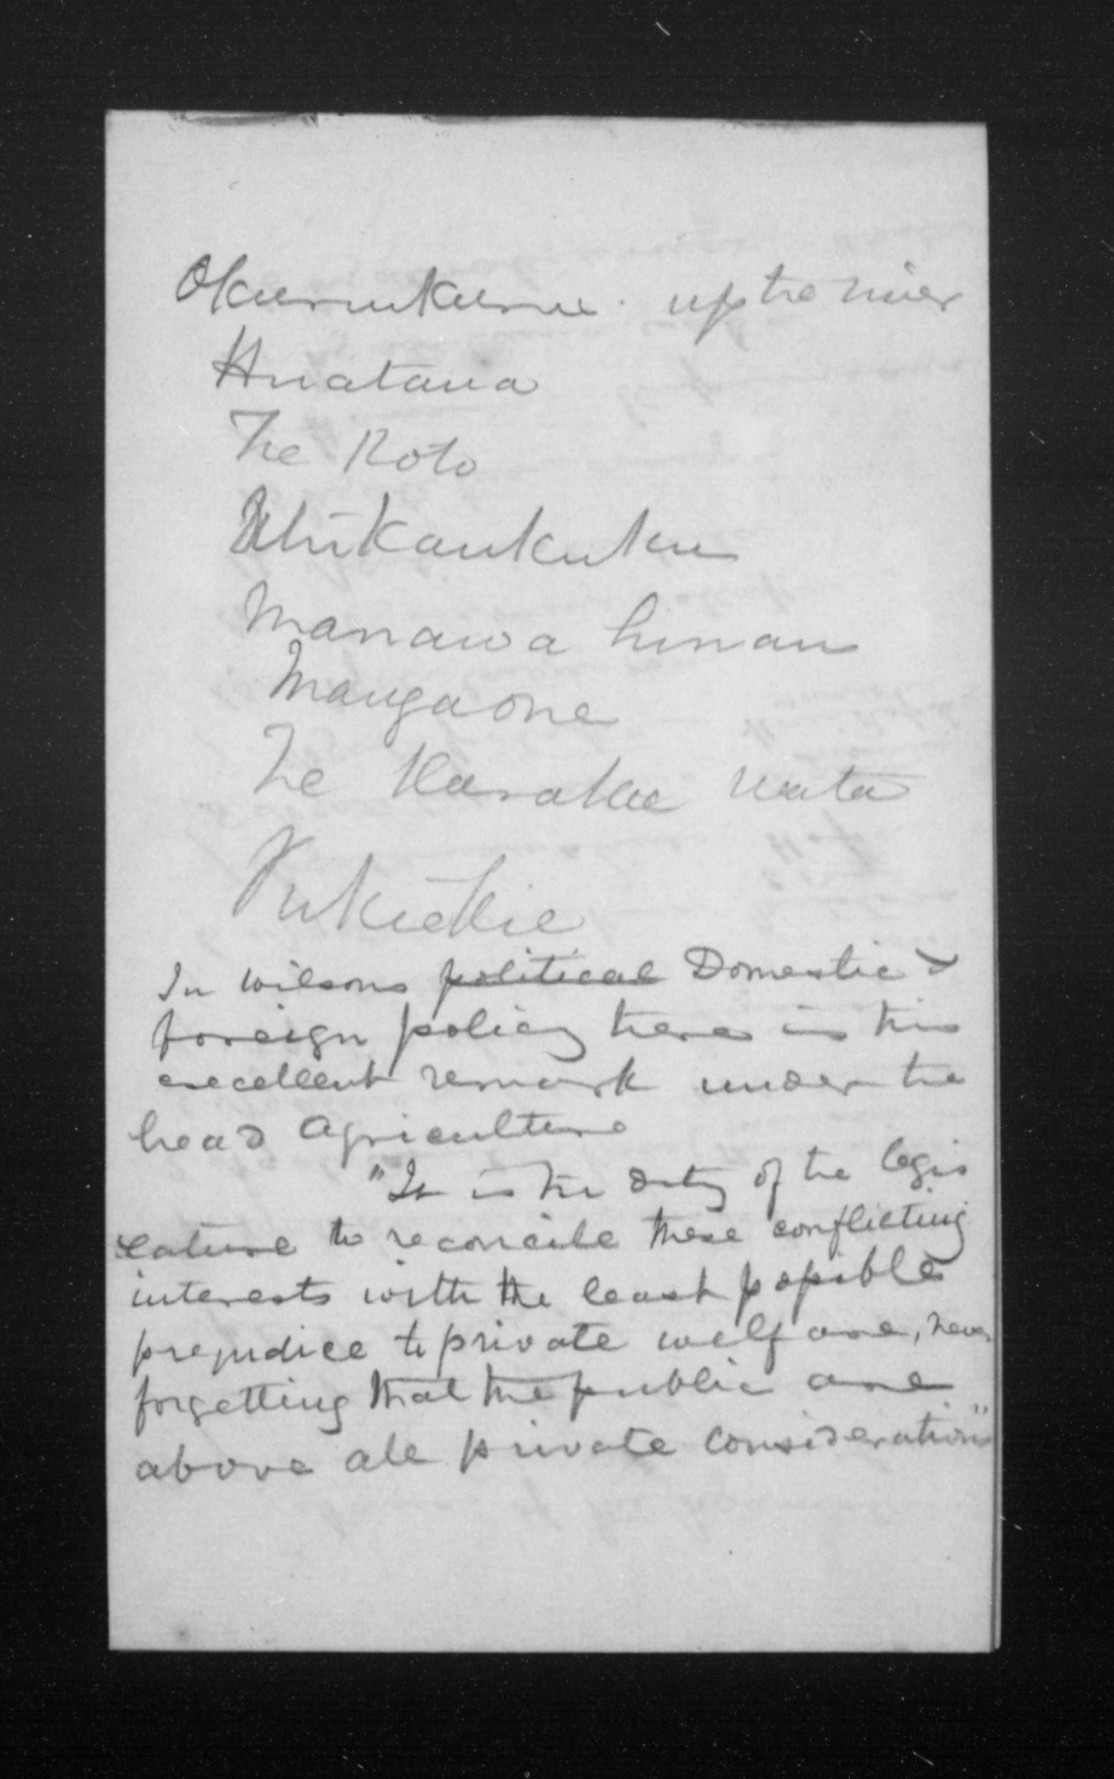 Okurukuru. up the river
Huataua
Te Roto
kaukuku
Manawa hinau
Mangaone
Te Karaka uata
Pukiekie
In Wilsons political Domestic &
foreign policy there is this
excellent remark under the
head Agriculture
"It is the duty of the legis
lature to reconcile these conflicting
interests with the least possible
prejudice to private welfare, never
forgetting that the public are
above all private consideration"